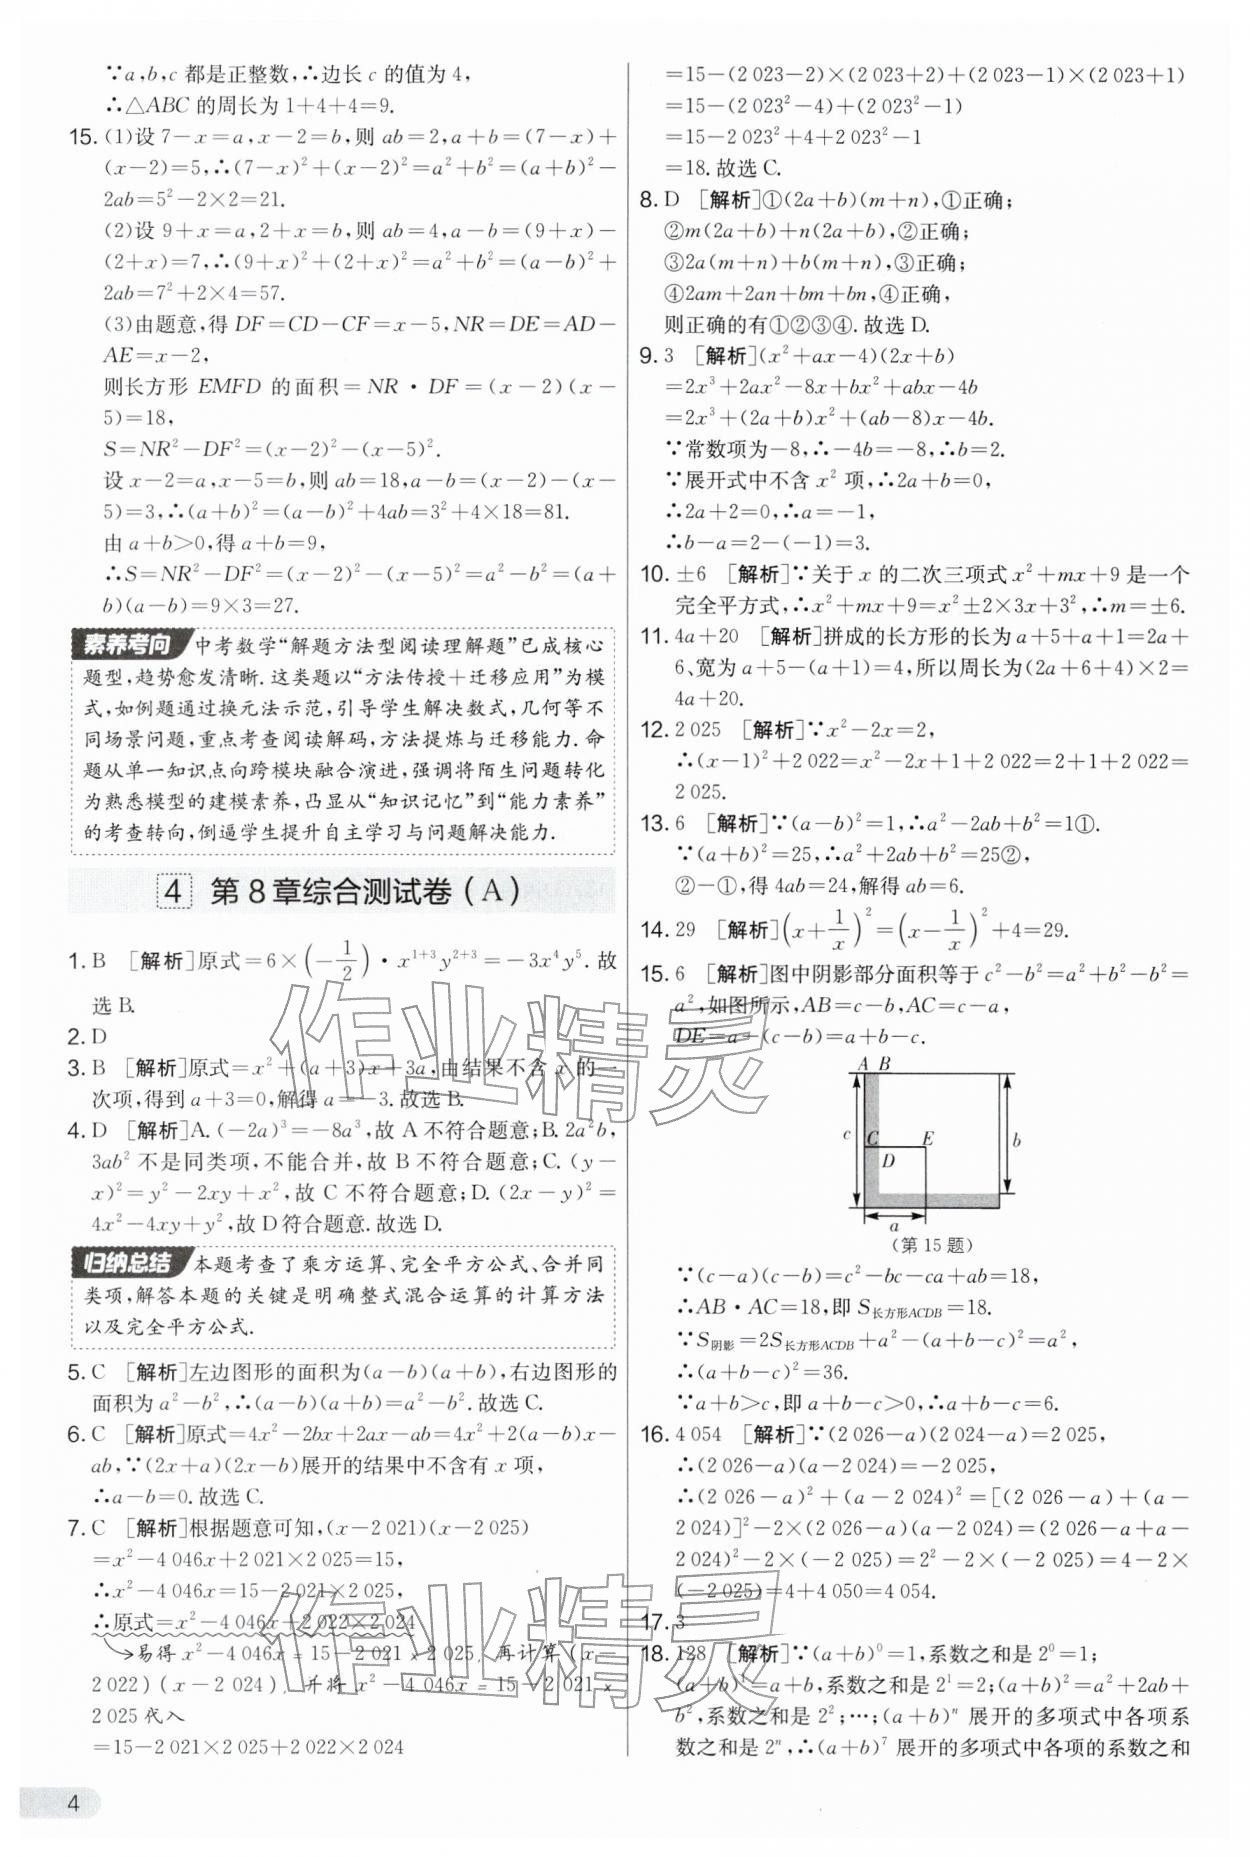 ∵a,b,c 都是正整数,∴边长 c 的值为 4,
∴△ABC 的周长为 1+4+4=9.
15. (1)设 7-x=a,x-2=b,则 ab=2,a+b=(7-x)+
(x-2)=5,∴(7-x)²+(x-2)²=a²+b²=(a+b)²-
2ab=5²-2×2=21.
(2)设 9+x=a,2+x=b,则 ab=4,a-b=(9+x)-
(2+x)=7,∴(9+x)²+(2+x)²=a²+b²=(a-b)²+
2ab=7²+2×4=57.
(3)由题意,得 DF=CD-CF=x-5,NR=DE=AD-
AE=x-2,
则长方形 EMFD 的面积=NR·DF=(x-2)(x-
5)=18,
S=NR²-DF²=(x-2)²-(x-5)².
设 x-2=a,x-5=b,则 ab=18,a-b=(x-2)-(x-
5)=3,∴(a+b)²=(a-b)²+4ab=3²+4×18=81.
由 a+b>0,得 a+b=9,
∴S=NR²-DF²=(x-2)²-(x-5)²=a²-b²=(a+
b)(a-b)=9×3=27.
素养考向 中考数学“解题方法型阅读理解题”已成核心
题型,趋势愈发清晰. 这类题以“方法传授+迁移应用”为模
式,如例题通过换元法示范,引导学生解决数式,几何等不
同场景问题,重点考查阅读解码,方法提炼与迁移能力. 命
题从单一知识点向跨模块融合演进,强调将陌生问题转化
为熟悉模型的建模素养,凸显从“知识记忆”到“能力素养”
的考查转向,倒逼学生提升自主学习与问题解决能力.
4 第 8 章综合测试卷(A)
1. B [解析]原式=6×(-1/2)·x¹⁺³y²⁺³=-3x⁴y⁵. 故
选 B.
2. D
3. B [解析]原式=x²+(a+3)x+3a,由结果不含 x 的一
次项,得到 a+3=0,解得 a=-3. 故选 B.
4. D [解析]A. (-2a)³=-8a³,故 A 不符合题意;B. 2a²b,
3ab² 不是同类项,不能合并,故 B 不符合题意;C. (y-
x)²=y²-2xy+x²,故 C 不符合题意;D. (2x-y)²=
4x²-4xy+y²,故 D 符合题意. 故选 D.
归纳总结 本题考查了乘方运算、完全平方公式、合并同
类项,解答本题的关键是明确整式混合运算的计算方法
以及完全平方公式.
5. C [解析]左边图形的面积为(a-b)(a+b),右边图形的
面积为 a²-b²,∴(a-b)(a+b)=a²-b². 故选 C.
6. C [解析]原式=4x²-2bx+2ax-ab=4x²+2(a-b)x-
ab,∵(2x+a)(2x-b)展开的结果中不含有 x 项,
∴a-b=0. 故选 C.
7. C [解析]根据题意可知,(x-2 021)(x-2 025)
=x²-4 046x+2 021×2 025=15,
∴x²-4 046x=15-2 021×2 025,
∴原式=x²-4 046x+2 022×2 024
→易得 x²-4 046x=15-2 021×2 025,再计算(x-
2 022)(x-2 024),并将 x²-4 046x=15-2 021×
2 025 代入
=15-2 021×2 025+2 022×2 024
4
=15-(2 023-2)×(2 023+2)+(2 023-1)×(2 023+1)
=15-(2 023²-4)+(2 023²-1)
=15-2 023²+4+2 023²-1
=18. 故选 C.
8. D [解析]①(2a+b)(m+n),①正确;
②m(2a+b)+n(2a+b),②正确;
③2a(m+n)+b(m+n),③正确;
④2am+2an+bm+bn,④正确,
则正确的有①②③④. 故选 D.
9. 3 [解析](x²+ax-4)(2x+b)
=2x³+2ax²-8x+bx²+abx-4b
=2x³+(2a+b)x²+(ab-8)x-4b.
∵常数项为-8,∴-4b=-8,∴b=2.
∵展开式中不含 x² 项,∴2a+b=0,
∴2a+2=0,∴a=-1,
∴b-a=2-(-1)=3.
10. ±6 [解析]∵关于 x 的二次三项式 x²+mx+9 是一个
完全平方式,∴x²+mx+9=x²±2×3x+3²,∴m=±6.
11. 4a+20 [解析]拼成的长方形的长为 a+5+a+1=2a+
6、宽为 a+5-(a+1)=4,所以周长为(2a+6+4)×2=
4a+20.
12. 2 025 [解析]∵x²-2x=2,
∴(x-1)²+2 022=x²-2x+1+2 022=2+1+2 022=
2 025.
13. 6 [解析]∵(a-b)²=1,∴a²-2ab+b²=1①.
∵(a+b)²=25,∴a²+2ab+b²=25②,
②-①,得 4ab=24,解得 ab=6.
14. 29 [解析](x+1/x)²=(x-1/x)²+4=29.
15. 6 [解析]图中阴影部分面积等于 c²-b²=a²+b²-b²=
a²,如图所示,AB=c-b,AC=c-a,
DE=a-(c-b)=a+b-c.
A B
c C E b
D
a
(第 15 题)
∵(c-a)(c-b)=c²-bc-ca+ab=18,
∴AB·AC=18,即 S长方形ACDB=18.
∵S阴影=2S长方形ACDB+a²-(a+b-c)²=a²,
∴(a+b-c)²=36.
∵a+b>c,即 a+b-c>0,∴a+b-c=6.
16. 4 054 [解析]∵(2 026-a)(2 024-a)=2 025,
∴(2 026-a)(a-2 024)=-2 025,
∴(2 026-a)²+(a-2 024)²=[(2 026-a)+(a-
2 024)]²-2×(2 026-a)(a-2 024)=(2 026-a+a-
2 024)²-2×(-2 025)=2²-2×(-2 025)=4-2×
(-2 025)=4+4 050=4 054.
17. 3
18. 128 [解析]∵(a+b)⁰=1,系数之和是 2⁰=1;
(a+b)¹=a+b,系数之和是 2¹=2;(a+b)²=a²+2ab+
b²,系数之和是 2²;…;(a+b)ⁿ 展开的多项式中各项系
数之和是 2ⁿ,∴(a+b)⁷ 展开的多项式中各项的系数之和
作业精灵
作业精灵